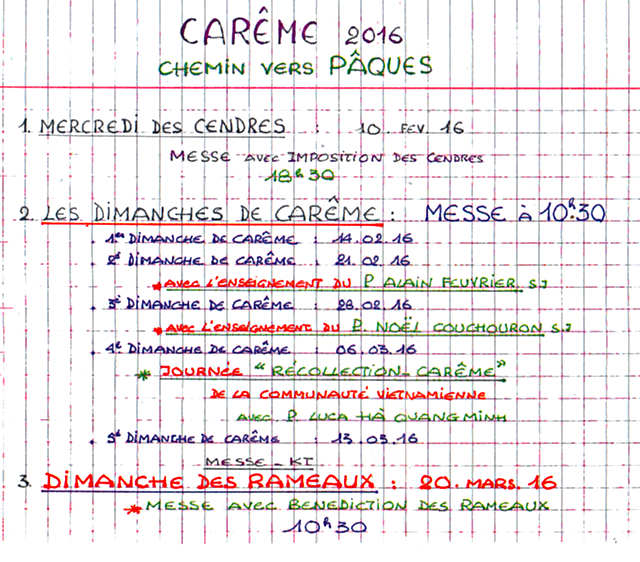 CARÊME 2016
CHEMIN VERS PÂQUES
1. MERCREDI DES CENDRES : 10. FEV. 16
MESSE AVEC IMPOSITION DES CENDRES
18h30
2. LES DIMANCHES DE CARÊME : MESSE À 10h30
. 1er DIMANCHE DE CARÊME : 14.02.16
. 2e DIMANCHE DE CARÊME : 21.02.16
* AVEC L'ENSEIGNEMENT DU P ALAIN FEUVRIER, S.J
. 3e DIMANCHE DE CARÊME : 28.02.16
* AVEC L'ENSEIGNEMENT DU P. NOËL COUCHOURON S.J
. 4e DIMANCHE DE CARÊME : 06.03.16
* JOURNÉE "RÉCOLLECTION-CARÊME"
DE LA COMMUNAUTÉ VIETNAMIENNE
AVEC P. LUCA HÀ QUANG MINH
. 5e DIMANCHE DE CARÊME : 13.03.16
MESSE - KT
3. DIMANCHE DES RAMEAUX : 20. MARS. 16
* MESSE AVEC BENEDICTION DES RAMEAUX
10h30